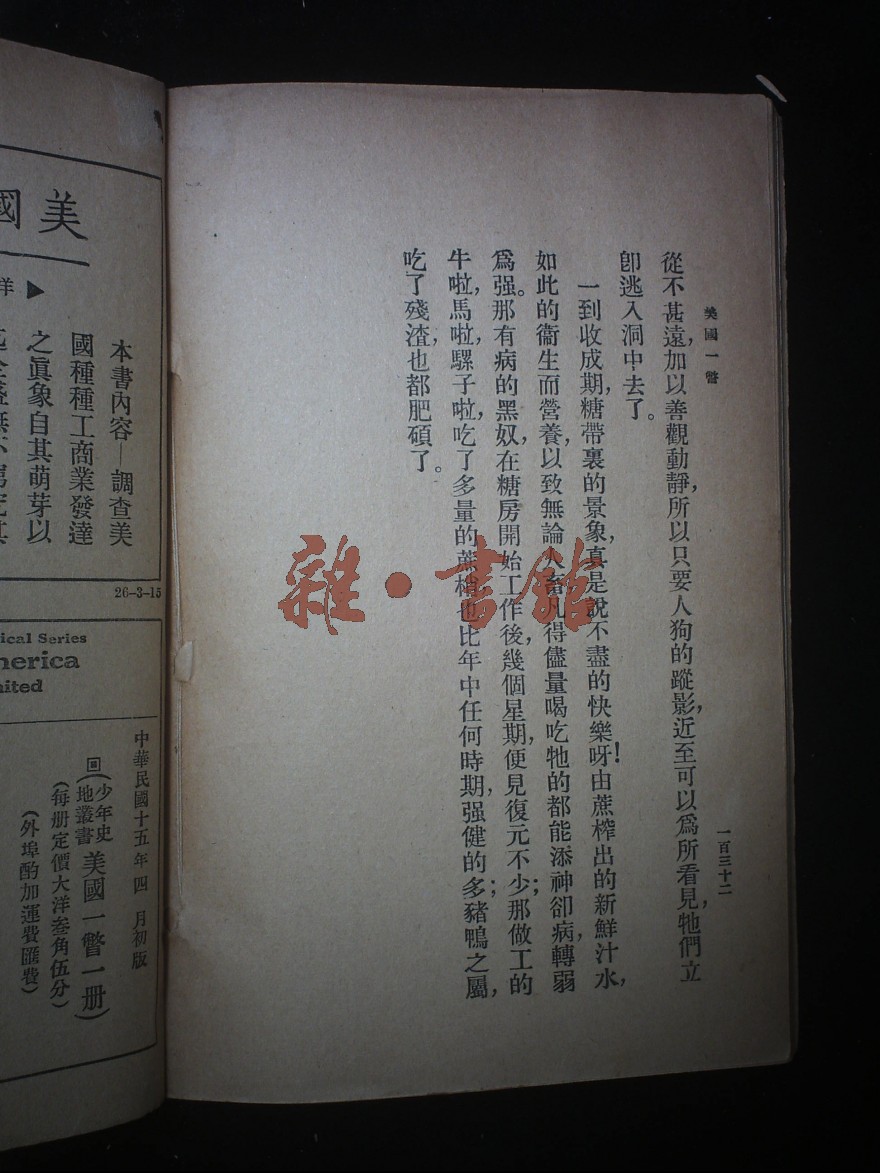 美國一瞥
一百三十二
從不甚遠，加以善觀動靜，所以只要人狗的蹤影，近至可以爲所看見，牠們立
卽逃入洞中去了。
一到收成期，糖帶裏的景象，真是說不盡的快樂呀！由蔗榨出的新鮮汁水，
如此的衞生而營養，以致無論人畜，凡得儘量喝吃牠的，都能添神卻病，轉弱
爲强。那有病的黑奴，在糖房開始工作後，幾個星期，便見復元不少；那做工的
牛啦，馬啦，騾子啦，吃了多量的蔗梢，也比年中任何時期，强健的多；豬鴨之屬，
吃了殘渣，也都肥碩了。
雜·書館
美國
洋
本書內容—調查美
國種種工商業發達
之眞象自其萌芽以
26-3-15
ical Series
merica
ited
中華民國十五年四月初版
(少年史地叢書 美國一瞥一册)
(每册定價大洋叁角伍分)
(外埠酌加運費匯費)